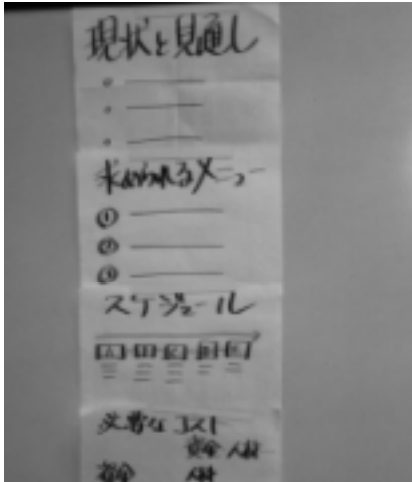 現状と見通し
求められるメニュー
①
②
③
スケジュール
必要なコスト
資金 人材
資金 人材